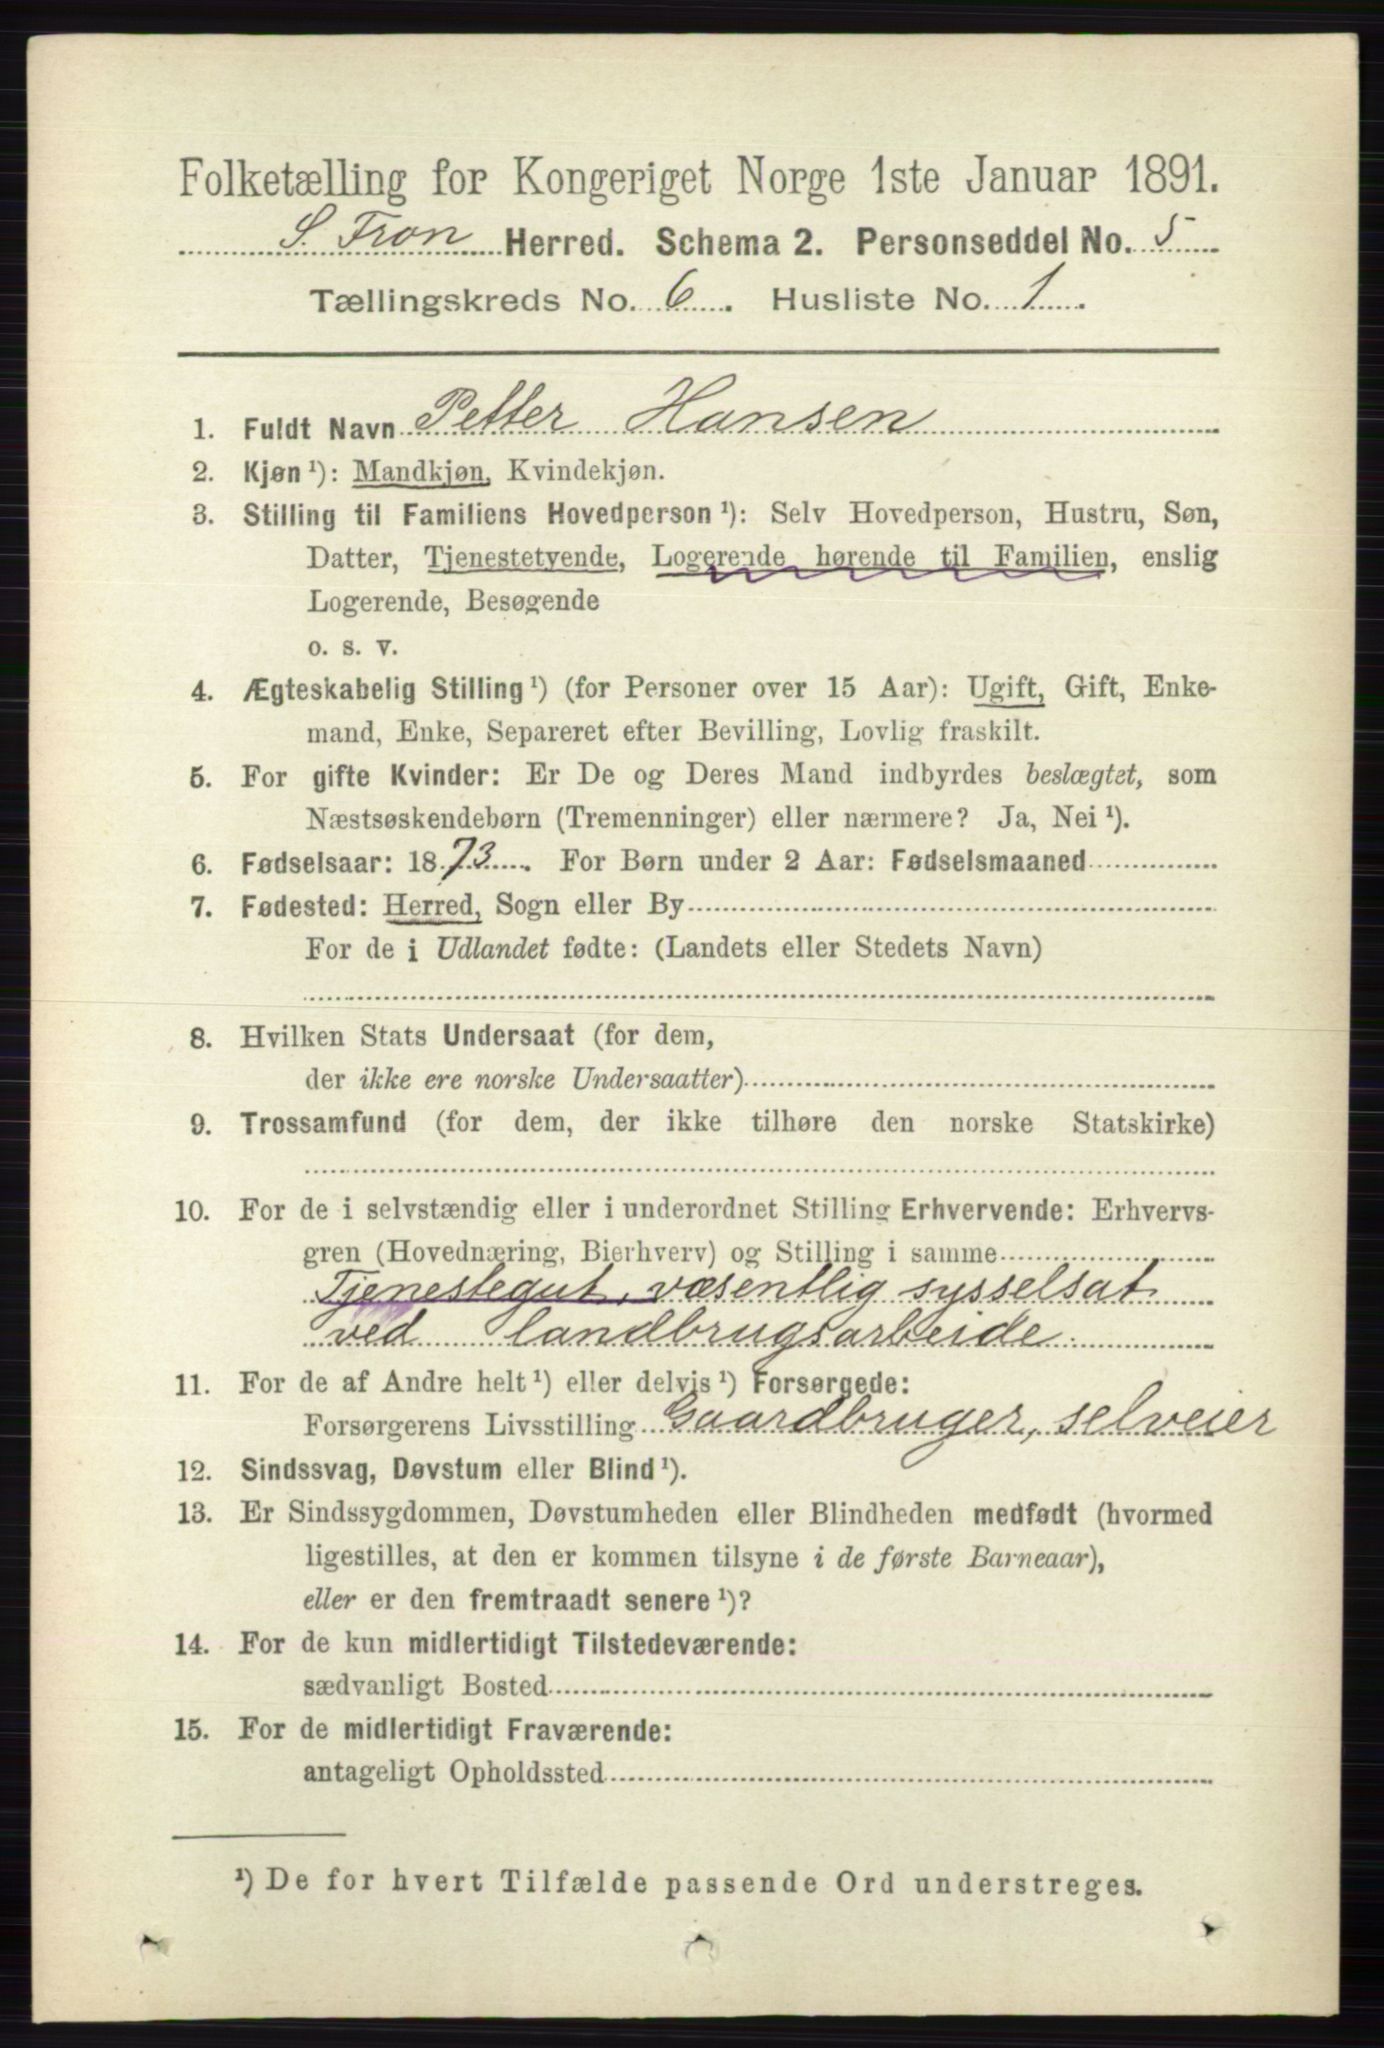 Folketælling for Kongeriget Norge 1ste Januar 1891.
S. Fron Herred. Schema 2. Personseddel No. 5
Tællingskreds No. 6. Husliste No. 1
1. Fuldt Navn Petter Hansen
2. Kjøn ¹): Mandkjøn, Kvindekjøn.
3. Stilling til Familiens Hovedperson ¹): Selv Hovedperson, Hustru, Søn,
Datter, Tjenestetyende, Logerende hørende til Familien, enslig
Logerende, Besøgende
o. s. v.
4. Ægteskabelig Stilling ¹) (for Personer over 15 Aar): Ugift, Gift, Enke-
mand, Enke, Separeret efter Bevilling, Lovlig fraskilt.
5. For gifte Kvinder: Er De og Deres Mand indbyrdes beslægtet, som
Næstsøskendebørn (Tremenninger) eller nærmere? Ja, Nei ¹).
6. Fødselsaar: 1873. For Børn under 2 Aar: Fødselsmaaned
7. Fødested: Herred, Sogn eller By
For de i Udlandet fødte: (Landets eller Stedets Navn)
8. Hvilken Stats Undersaat (for dem,
der ikke ere norske Undersaatter)
9. Trossamfund (for dem, der ikke tilhøre den norske Statskirke)
10. For de i selvstændig eller i underordnet Stilling Erhvervende: Erhvervs-
gren (Hovednæring, Bierhverv) og Stilling i samme
Tjenestegut, væsentlig sysselsat
ved landbrugsarbeide
11. For de af Andre helt ¹) eller delvis ¹) Forsørgede:
Forsørgerens Livsstilling Gaardbruger, selveier
12. Sindssvag, Døvstum eller Blind ¹).
13. Er Sindssygdommen, Døvstumheden eller Blindheden medfødt (hvormed
ligestilles, at den er kommen tilsyne i de første Barneaar),
eller er den fremtraadt senere ¹)?
14. For de kun midlertidigt Tilstedeværende:
sædvanligt Bosted
15. For de midlertidigt Fraværende:
antageligt Opholdssted
¹) De for hvert Tilfælde passende Ord understreges.